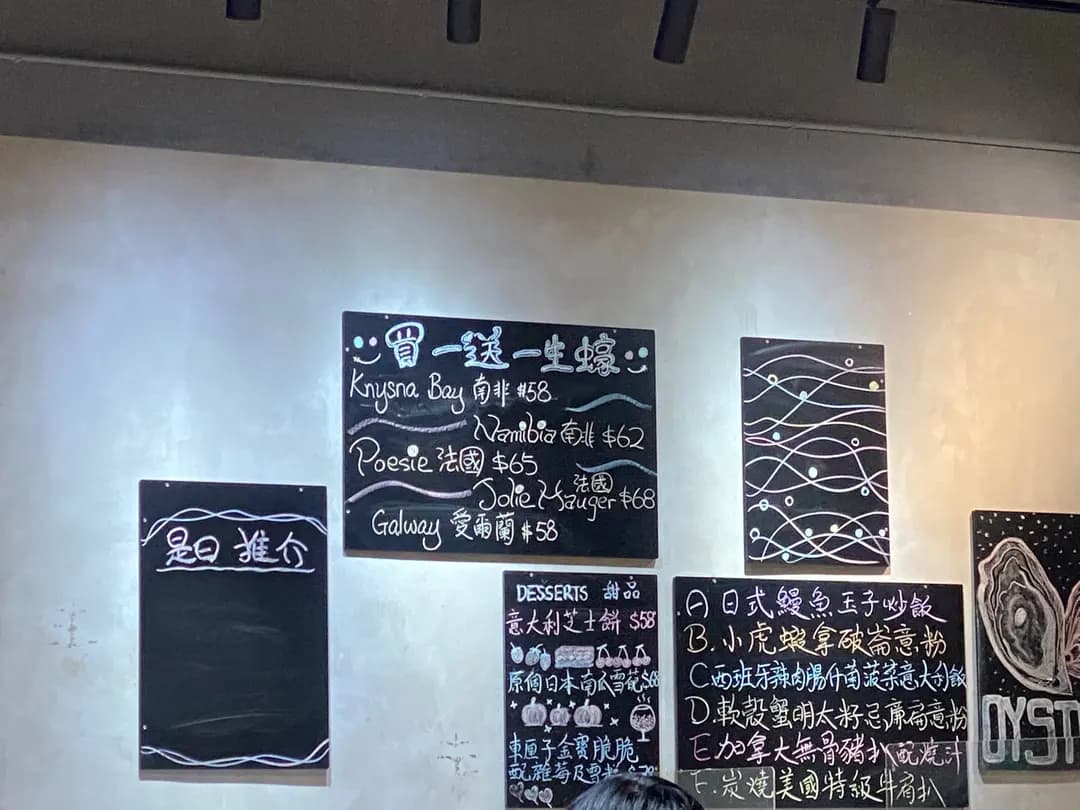 買一送一生蠔
Knysna Bay 南非 $58
Namibia 南非 $62
Poesie 法國 $65
法國
Jolie Mauger $68
Galway 愛爾蘭 $58
是日 推介
DESSERTS 甜品
意大利芝士餅 $58
原個日本南瓜雪葩
車厘子金寶脆脆
配雜莓及雪粉
A 日式鰻魚玉子炒飯
B. 小虎蝦拿破崙意粉
C 西班牙辣肉腸什菌菠菜意大利飯
D. 軟殼蟹明太籽忌廉扁意粉
E 加拿大無骨豬扒配燒汁
F. 炭燒美國特級牛肩扒
OYST